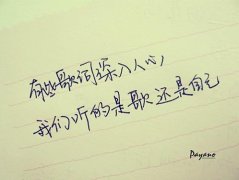 有些歌词深入人心
我们听的是歌还是自己
Payano